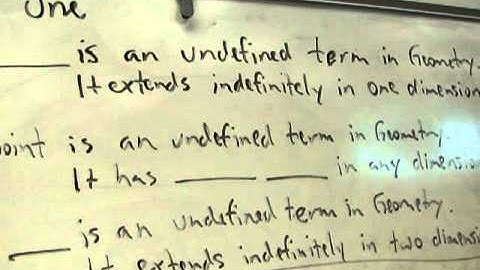 One
_____ is an undefined term in Geometry.
It extends indefinitely in one dimension
point is an undefined term in Geometry.
It has _____ _____ in any dimension
_____ is an undefined term in Geometry.
It extends indefinitely in two dimensi